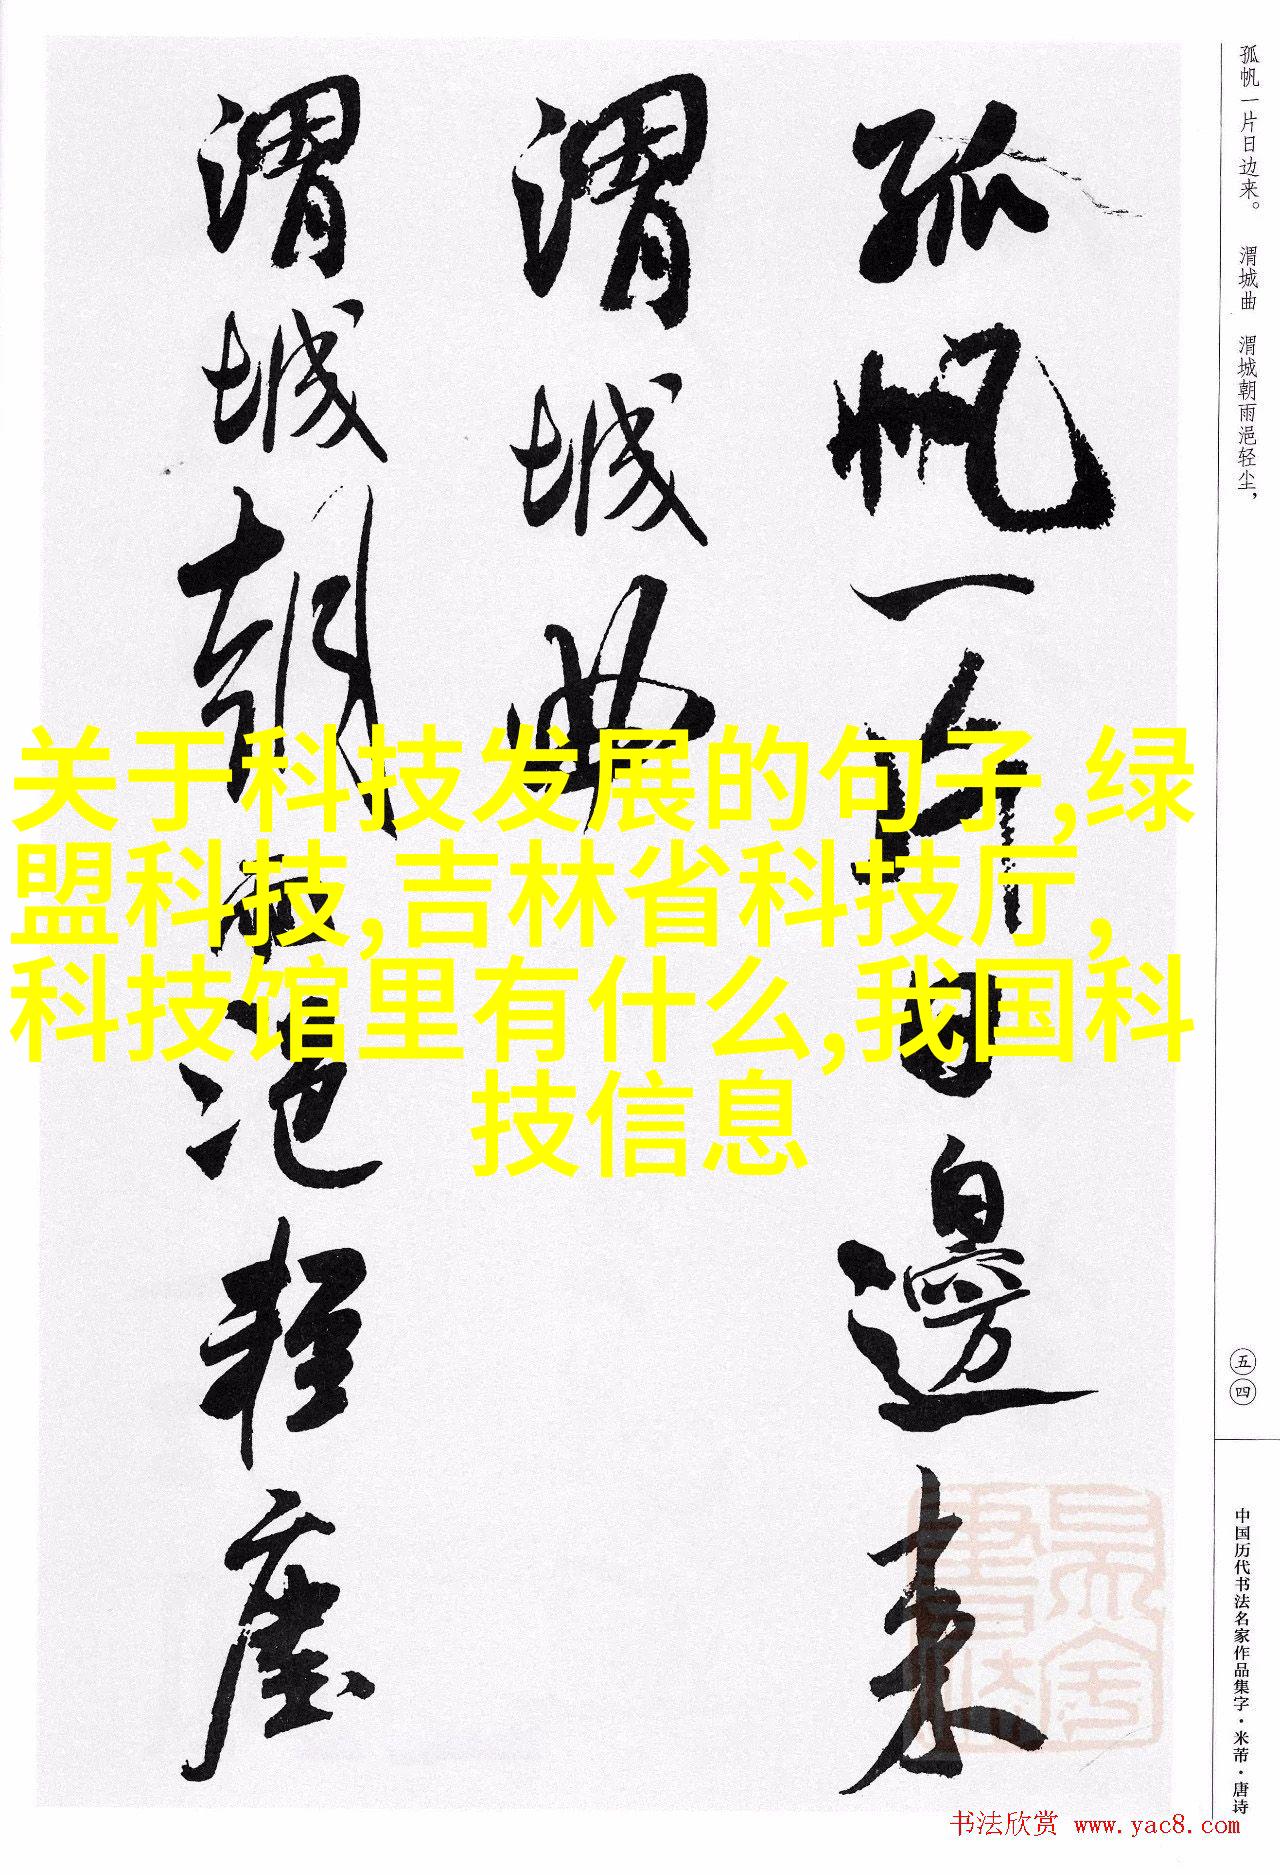 孤帆一片日邊来
渭城曲
渭城朝雨浥輕塵
孤帆一片日边来。 渭城曲 渭城朝雨浥轻尘，
五四
中国历代书法名家作品集字·米芾·唐诗
关于科技发展的句子,绿
盟科技,吉林省科技厅，
科技馆里有什么,我国科
技信息
书法欣赏 www.yac8.com